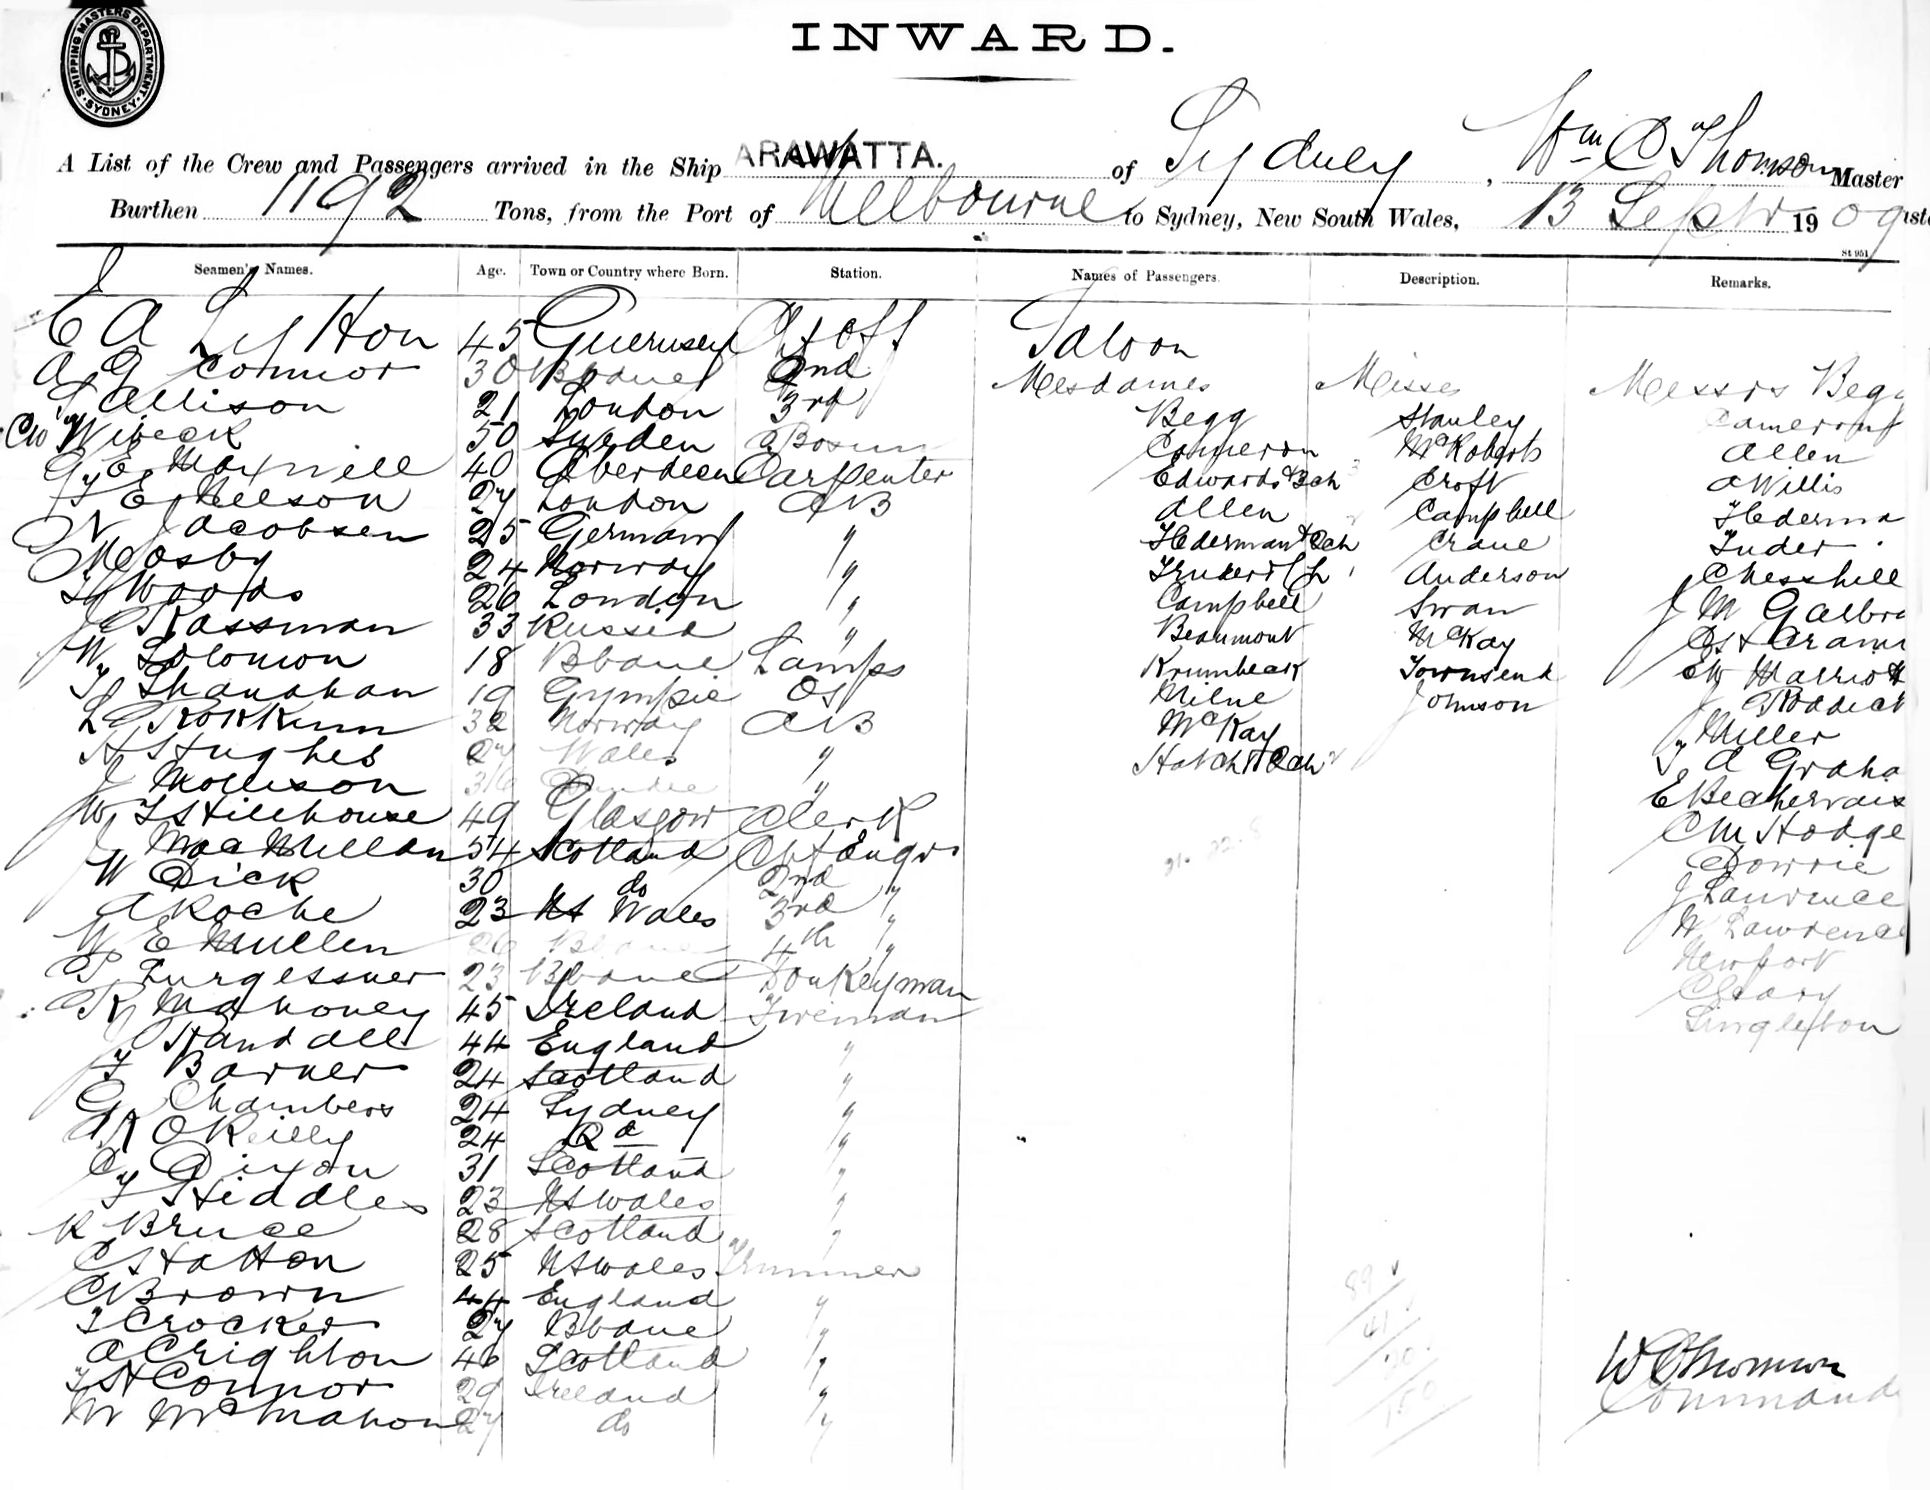 SHIPPING MASTERS DEPARTMENT. SYDNEY
INWARD.
A List of the Crew and Passengers arrived in the Ship ARAWATTA. of Sydney, Wm C Thomson Master
Burthen 1192 Tons, from the Port of Melbourne to Sydney, New South Wales, 13 Septr 1909
St 951
Seamen's Names. Age. Town or Country where Born. Station. Names of Passengers. Description. Remarks.
E A Lytton 45 Guernsey Ch Off Saloon
A G Connor 30 Bbane 2nd Mesdames Misses Messrs Begg
S Allison 21 London 3rd Begg Stanley Cameron
Wibeck 50 Sweden Bosun Cameron McRoberts Allen
G E Maxwell 40 Aberdeen Carpenter Edwards & 3ch Croft A Willis
T E Neelson 27 London AB Allen Campbell Hederma
N Jacobsen 25 Germany " Hederman & 2ch Crane Tuder
Mosby 24 Norway " Anderson Chesshill
H Woods 26 London " Campbell Swan J M Galbra
J Rassman 33 Russia " Beaumont McKay
W Solomon 18 Bbane Lamps Krumbeck Townsend EW Marriott
T Shanahan 19 Gympie OS Milne J Johnson J Roddick
L Rokkum 32 Norway AB McKay J Miller
H Hughes 27 Wales " Hatch & 2ch A Graha
J Mollison 36 Dundee " E Beachervais
W T Hillhouse 49 Glasgow Clerk C M Hodge
J MacMillan 54 Scotland Ch Engr Dowrie
W Dick 30 do 2nd " J Lawrence
A Roche 23 NS Wales 3rd " W Lawrence
W E Mullen 26 Bbane 4th " Newport
T Turgessner 23 Bbane Donkeyman Cleary
R Mahoney 45 Ireland Fireman Singleton
J Randall 44 England "
T Barner 24 Scotland "
G Chambers 24 Sydney "
A R OReilly 24 Qd "
C Dixon 31 Scotland "
T Hiddles 23 NSWales "
R Bruce 28 Scotland "
C Hatton 25 NSWales Trimmer
C Brown 44 England " 89
T Crocker 27 Bbane " 41
A Crighton 46 Scotland " 20 W C Thomson
T H Connor 29 Ireland " 150 Command
W McMahon 27 do "